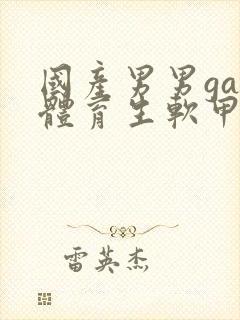 國產男男ga
體育生軟甲
雷英杰